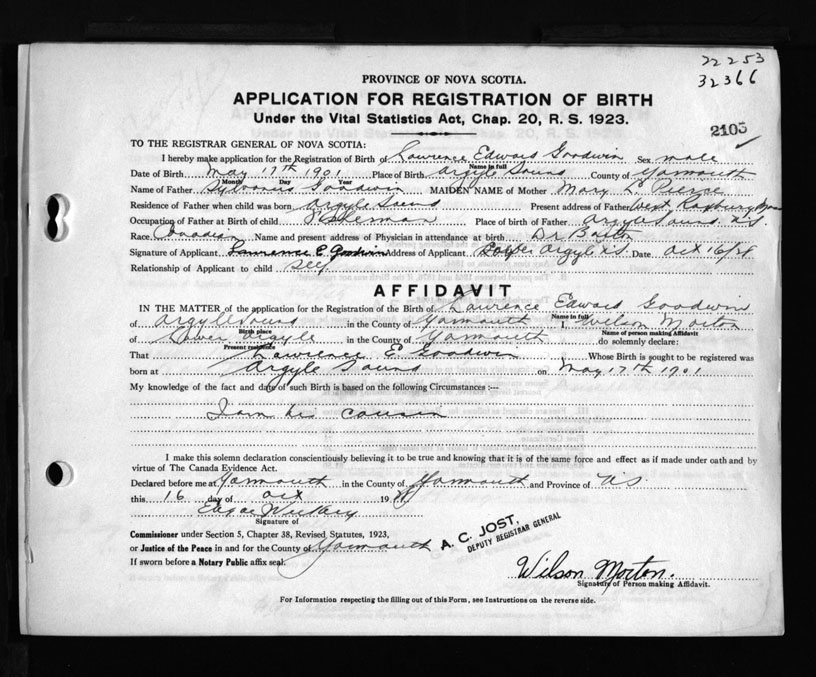 22253
32366
PROVINCE OF NOVA SCOTIA.
APPLICATION FOR REGISTRATION OF BIRTH
Under the Vital Statistics Act, Chap. 20, R. S. 1923.
2105
TO THE REGISTRAR GENERAL OF NOVA SCOTIA:
I hereby make application for the Registration of Birth of Lawrence Edward Goodwin Sex male
Name in full
Date of Birth May 17th 1901 Place of Birth Argyle Sound County of Yarmouth
Month Day Year
Name of Father Sylvanus Goodwin MAIDEN NAME of Mother Mary E. Pierce
Residence of Father when child was born Argyle Sound Present address of Father West Roxbury Mass
Occupation of Father at Birth of child Place of birth of Father Argyle Sound N.S.
Race Canadian Name and present address of Physician in attendance at birth Dr
Signature of Applicant Lawrence E Goodwin Address of Applicant Argyle N.S. Date Oct 16/28
Relationship of Applicant to child Self
AFFIDAVIT
IN THE MATTER of the application for the Registration of the Birth of Lawrence Edward Goodwin
Name in full
of Argyle Sound in the County of Yarmouth I, Wilson Morton
Birth place Name of person making Affidavit
of Lower Argyle in the County of Yarmouth do solemnly declare:
Present residence
That Lawrence E Goodwin Whose Birth is sought to be registered was
born at Argyle Sound on May 17th 1901
My knowledge of the fact and date of such Birth is based on the following Circumstances :—
I am his cousin
I make this solemn declaration conscientiously believing it to be true and knowing that it is of the same force and effect as if made under oath and by
virtue of The Canada Evidence Act.
Declared before me at Yarmouth in the County of Yarmouth and Province of N.S.
this 16 day of Oct 19
Edgar
Signature of
Commissioner under Section 5, Chapter 38, Revised Statutes, 1923,
or Justice of the Peace in and for the County of Yarmouth
If sworn before a Notary Public affix seal.
A. C. JOST,
DEPUTY REGISTRAR GENERAL
Wilson Morton.
Signature of Person making Affidavit.
For Information respecting the filling out of this Form, see Instructions on the reverse side.